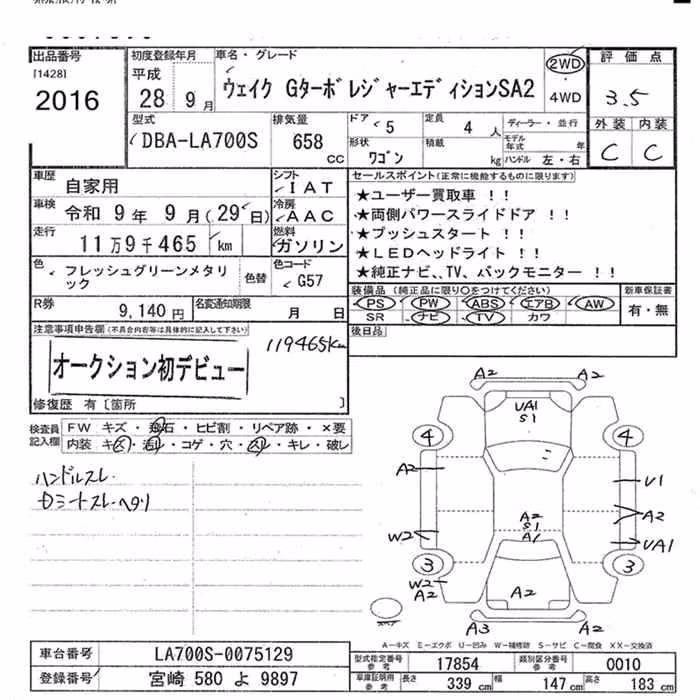 出品番号
[1428]
2016
初度登録年月
平成
28 9 月
車名・グレード
ウェイク GターボレジャーエディションSA2
2WD
・
4WD
評価点
3.5
外装 内装
C C
型式
DBA-LA700S
排気量
658
CC
ドア 5
定員 4 人
形状
ワゴン
積載
kg
ディーラー・並行
モデル年式 年
ハンドル 左・右
車歴 自家用
車検 令和 9 年 9 月(29日)
走行 11万9千465 km
色 フレッシュグリーンメタリック
色替
シフト
IAT
冷房
AAC
燃料
ガソリン
色コード
G57
R券 9,140 円
名変通知期限 月 日
セールスポイント(正常に機能するものに限ります)
★ユーザー買取車 !!
★両側パワースライドドア !!
★プッシュスタート !!
★LEDヘッドライト !!
★純正ナビ、、TV、バックモニター !!
装備品 (純正品に限り○をつけてください)
PS PW ABS エアB AW
SR ナビ TV カワ
新車保証書
有・無
後日品
注意事項申告欄(不具合内容等は具体的に記入して下さい)
119465km
オークション初デビュー
修復歴 有〔箇所 〕
検査員記入欄
FW キズ・飛石・ヒビ割・リペア跡・×要
内装 キズ・汚レ・コゲ・穴・スレ・キレ・破レ
ハンドルスレ
Dシートスレヘタリ
A2 A2
UA1
S1
4 4
A2
U1
A2
A2
S1
A1
W2
UA1
3 3
W2
A2
A2
A3 A2
スペア
A-キズ E-エクボ U-凹み W-補修跡 S-サビ C-腐食 XX-交換済
車台番号 LA700S-0075129
登録番号 宮崎 580 よ 9897
型式指定番号 参考 17854
類別区分番号 参考 0010
車庫証明用 参考 長さ 339 cm 幅 147 cm 高さ 183 cm